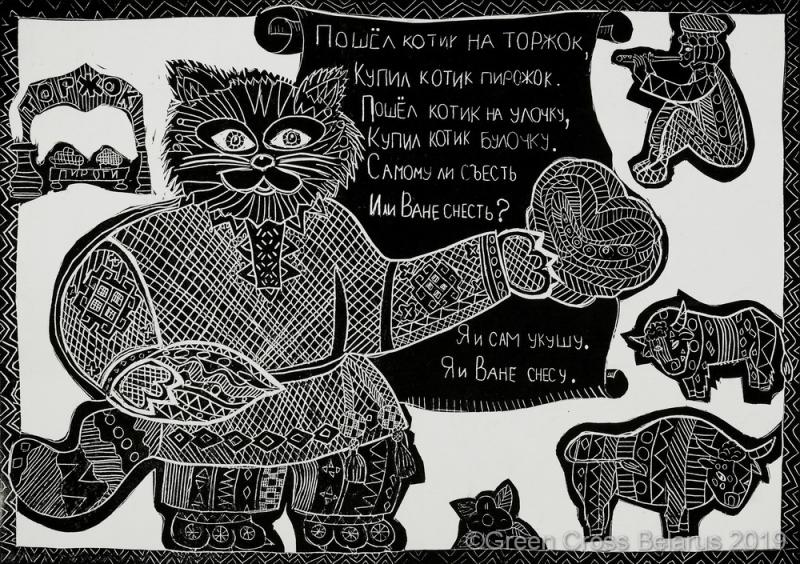 Пошёл котик на торжок,
Купил котик пирожок.
Пошёл котик на улочку,
Купил котик булочку.
Самому ли съесть
Или Ване снесть?
Я и сам укушу.
Я и Ване снесу.
ТОРЖОК
ПИРОГИ
©Green Cross Belarus 2019